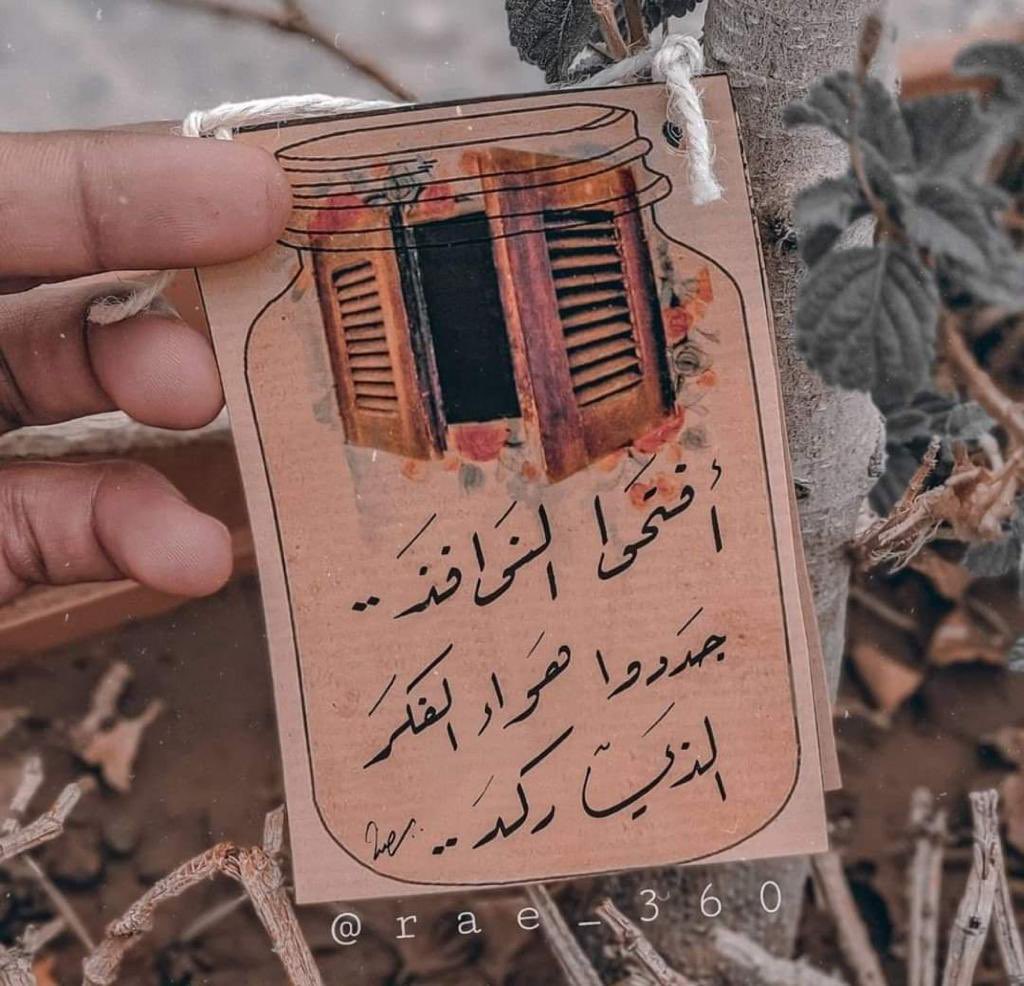 أفتحوا النوافذ..
جددوا هواء الفكر
الذي ركد..
@rae_360